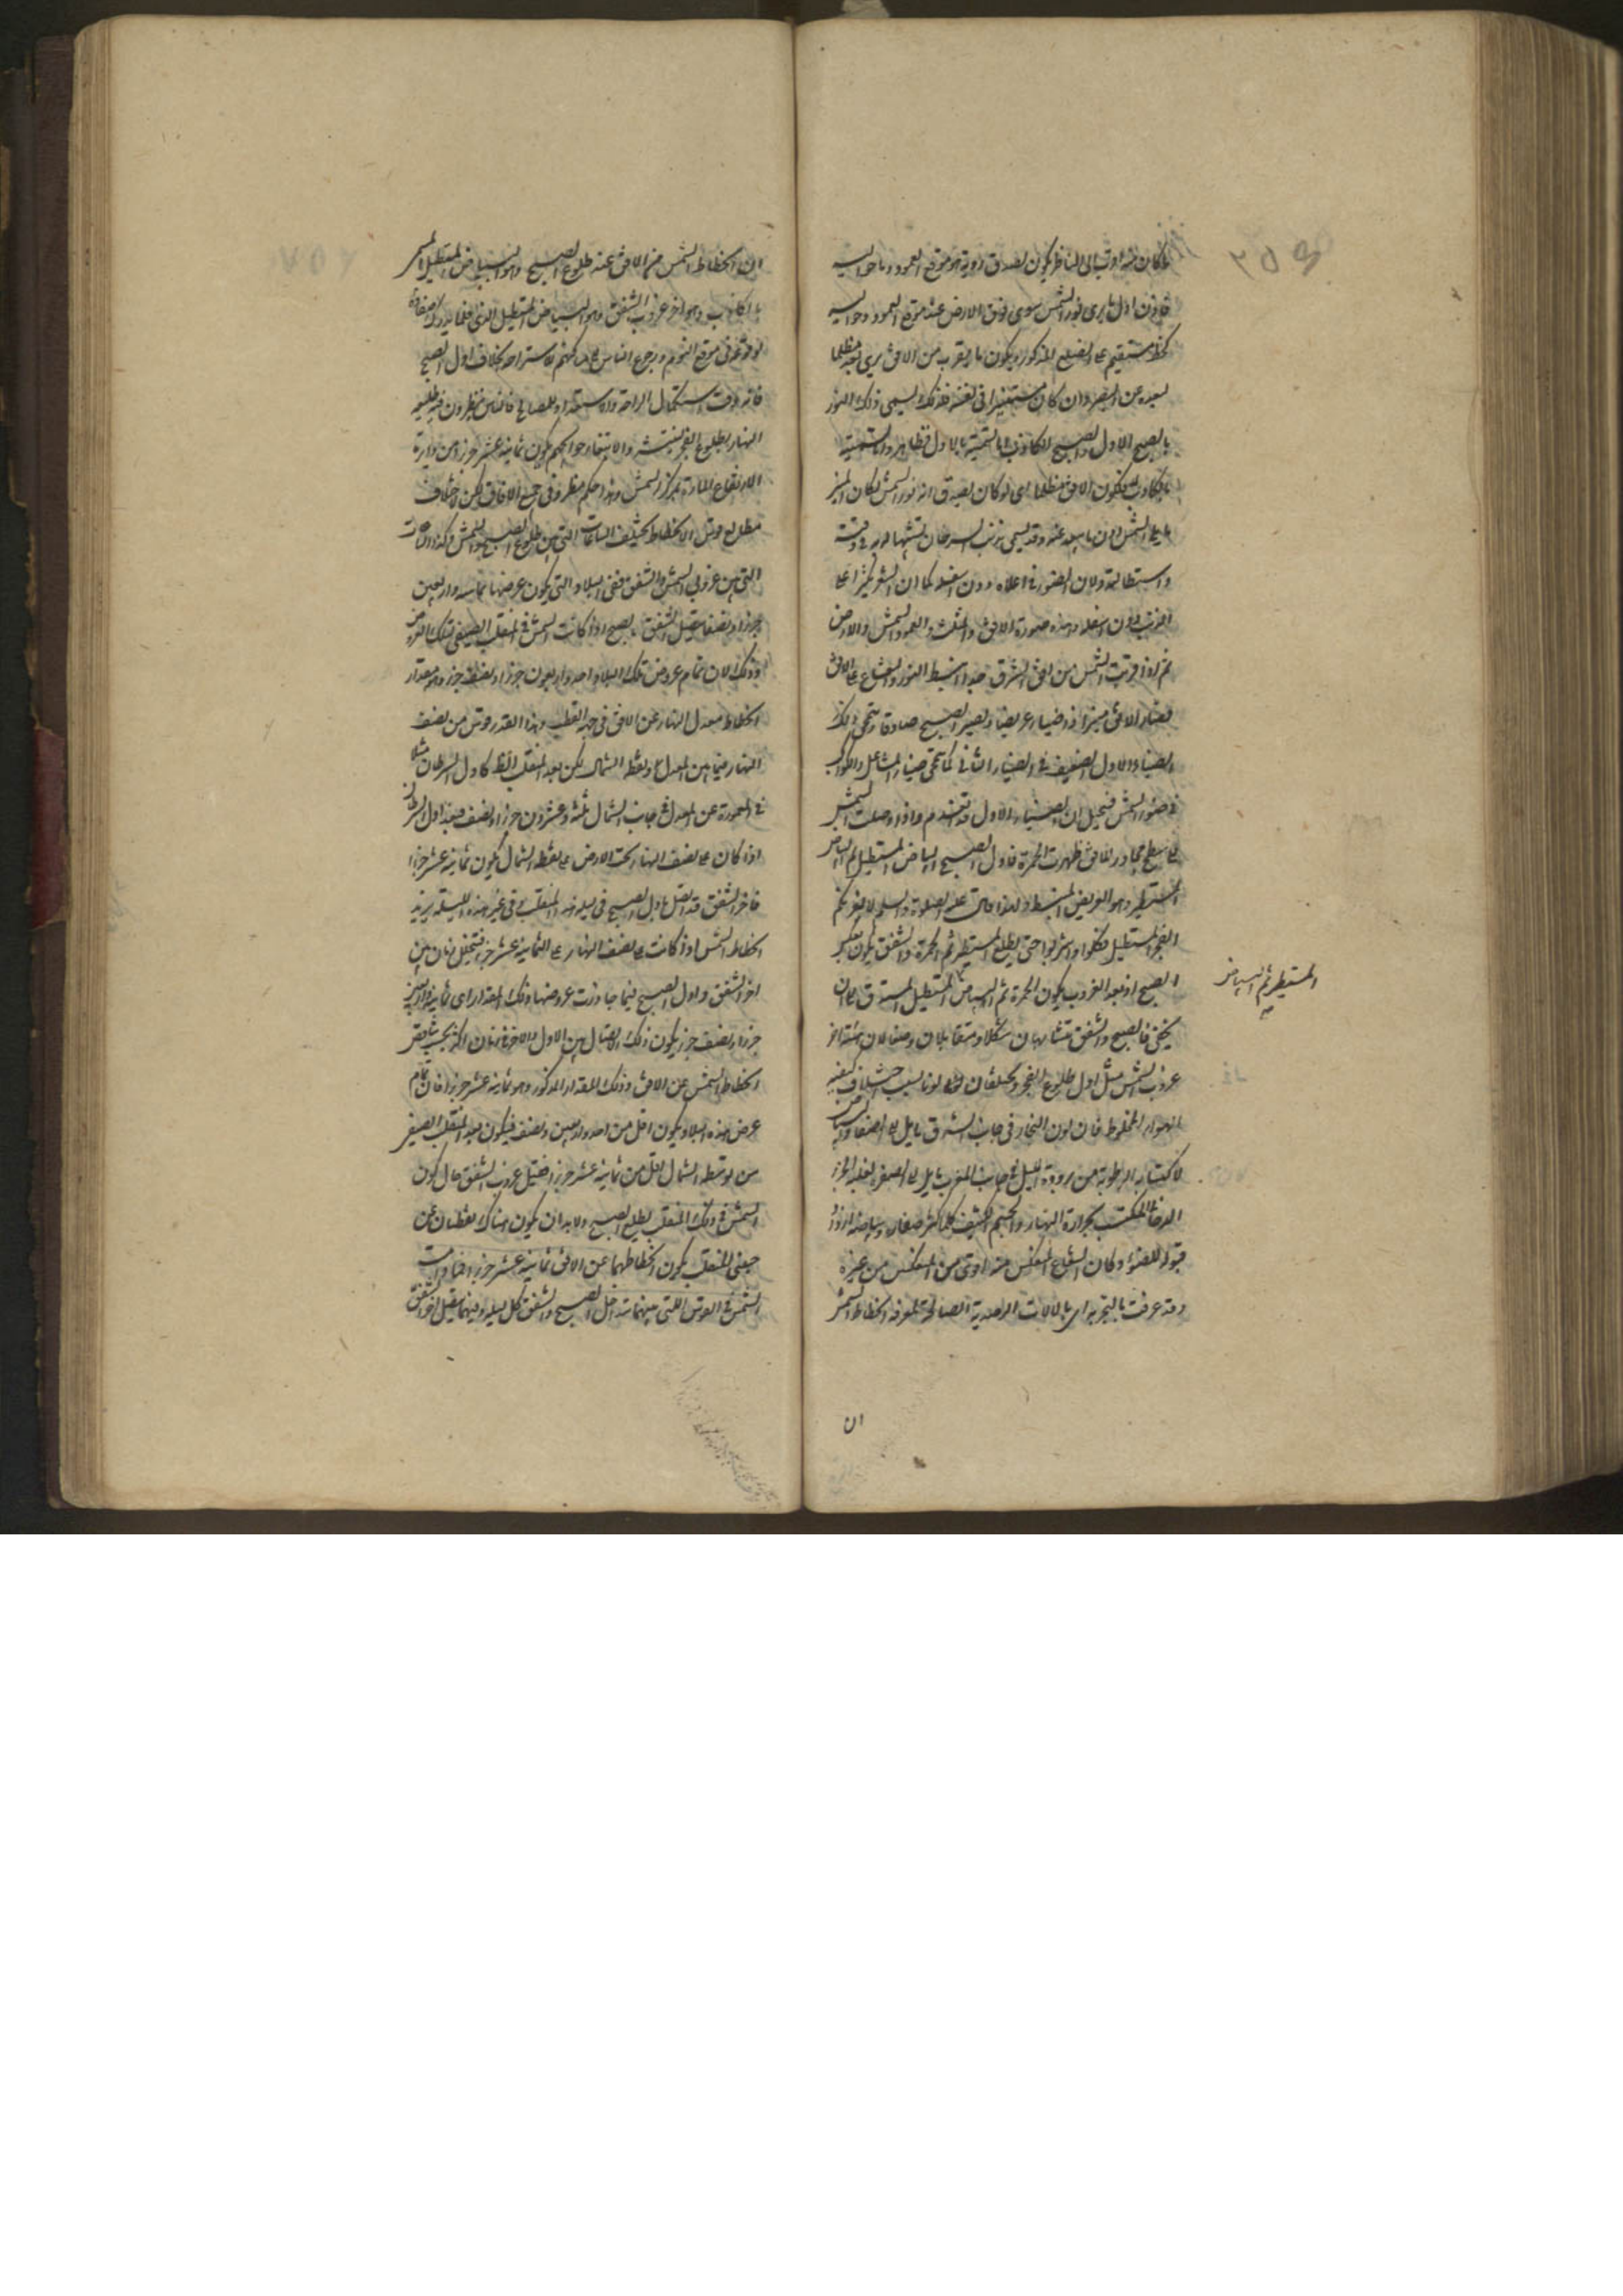 ما كان منه اقرب الى الناظر يكون اصدق رؤية هو موقع العمود وما حواليه
فاذن اول ما يرى نور الشمس سوى فوق الارض عند موقع العمود وحواليه
كخط مستقيم على الضلع المذكور ويكون ما يقرب من الافق يرى بعد مظلما
لبعده عن البصر وان كان مستنيرا فى نفسه فلذلك يسمى ذلك النور
بالصبح الاول والصبح الكاذب اما التسمية بالاول فظاهر واما التسمية
بالكاذب فلكون الافق مظلما اى لو كان يصدق انه نور الشمس لكان المنير
ما يلى الشمس دون ما يبعد عنه وقد يسمى بذنب السرحان تشبيها له به فى دقته
واستطالته ولان الضوء فى اعلاه دون اسفله كما ان الشعر يكثر اعلى
الذنب دون اسفله وهذه صورة الافق والمثلث والعمود والشمس والارض
ثم اذا قربت الشمس من افق المشرق جدا انبسط النور والشعاع على الافق
فصار الافق منيرا ذا ضياء عريضا ويصير الصبح صادقا وينمحى ذلك
الضياء الاول الضعيف فى الضياء الثانى كما ينمحى ضياء المشاعل والكواكب
فى ضوء الشمس فيخيل ان الضياء الاول قد انعدم واذا وصلت الشمس
الى سطح مجاور للافق ظهرت الحمرة فاول الصبح البياض المستطيل ثم البياض
المستطير وهو العريض المنبسط ولهذا قال عليه الصلوة والسلم لا يغرنكم
الفجر المستطيل فكلوا واشربوا حتى يطلع المستطير ثم الحمرة والشفق يكون بعكس
الصبح اذ بعد الغروب يكون الحمرة ثم البياض المستطيل المستدق الى ان
المستطير ثم البياض
يختفى فالصبح والشفق متشابهان شكلا ومتقابلان وضعا لان هيئة اخر
غروب الشمس مثل اول طلوع الفجر ويختلفان لونا بسبب اختلاف كيفية
الهواء المخلوط فان لون البخار فى جانب الشرق مايل الى الصفاء والبياض
لاكتسابه الرطوبة من برودة الليل وفى جانب المغرب مايل الى الصفرة لغلبة الجزء
الدخانى المكتسب بحرارة النهار والجسم الكثيف كلما كثر صفاؤه وبياضه ازداد
قبولا للضوء وكان الشعاع المنعكس منه اقوى من المنعكس من غيره
وقد عرفت بالتجربة اى بالالات الرصدية الصالحة لمعرفة انخطاط الشمس
ان
ان انخطاط الشمس من الافق عند طلوع الصبح وهو البياض المستطيل المسمى
بالكاذب وهو اخر غروب الشفق وهو البياض المستطيل الذى قلما يدرك
لوقوعه فى موقع النوم ورجوع الناس الى مساكنهم للاستراحة بخلاف اول الصبح
فانه وقت استكمال الراحة والاستعداد للمصالح فالناس ينتظرون فيه طليعة
النهار بطلوع الفجر لينتشروا لانتهاء حوايجهم يكون ثمانية عشر جزءا من دايرة
الارتفاع المارة بمركز الشمس وهذا حكم مطرد فى جميع الافاق لكن لاختلاف
مطالع قوس الانخطاط يختلف الساعات التى بين طلوع الصبح والشمس وكذا الساعات
التى بين غروبى الشمس والشفق ففى البلاد التى يكون عرضها ثمانية واربعين
جزءا ونصفا يتصل الشفق بالصبح اذا كانت الشمس فى المنقلب الصيفى لتلك العروض
وذلك لان تمام عروض تلك البلاد احد واربعون جزءا ونصف جزء وهو مقدار
انخطاط معدل النهار عن الافق فى جهة القطب وهذا القدر قوس من نصف
النهار فيما بين المعدل ونقطة الشمال لكن بعد المنقلب الظاهر كاول السرطان مثلا
فى المعمورة عن المعدل فى جانب الشمال ثلثة وعشرون جزءا ونصف فبعد اول السرطان
اذا كان على نصف النهار تحت الارض عن نقطة الشمال يكون ثمانية عشر جزءا
فاخر الشفق قد اتصل باول الصبح فى ليلة هذا المنقلب وفى غير هذه الليلة يزيد
انخطاط الشمس اذا كانت على نصف النهار على الثمانية عشر جزءا فيتخلل زمان بين
اخر الشفق واول الصبح فيما جاوزت عروضها ذلك المقدار اى ثمانية واربعين
جزءا ونصف جزء يكون ذلك الاتصال بين الاول والاخر فى زمان اكثر بحسب
انخطاط الشمس عن الافق وذلك المقدار المذكور وهو ثمانية عشر جزءا فان تمام
عرض هذه البلاد يكون اقل من احد واربعين ونصف فيكون بعد المنقلب الصيفى
من نقطة الشمال اقل من ثمانية عشر جزءا فقبل غروب الشفق حال كون
الشمس فى ذلك المنقلب يطلع الصبح ولا بد ان يكون هناك نقطتان عن
جنبى المنقلب يكون انخطاطهما عن الافق ثمانية عشر جزءا فما دامت
الشمس فى القوس التى بينهما تتداخل الصبح والشفق كل ليلة وفيهما يتصل اخر الشفق